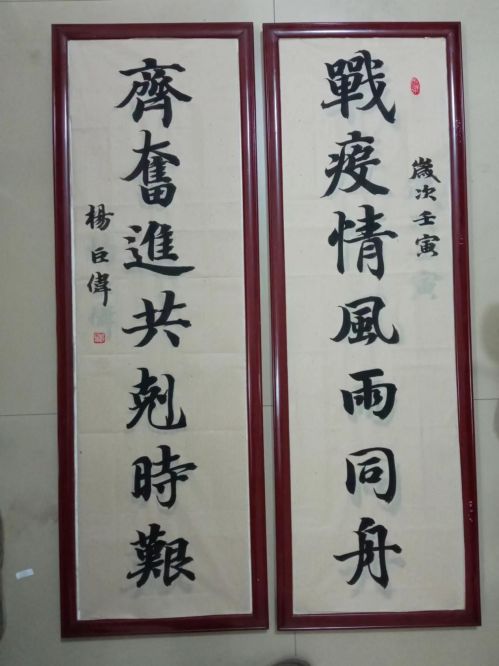 戰疫情風雨同舟
歲次壬寅
齊奮進共剋時艱
楊巨偉